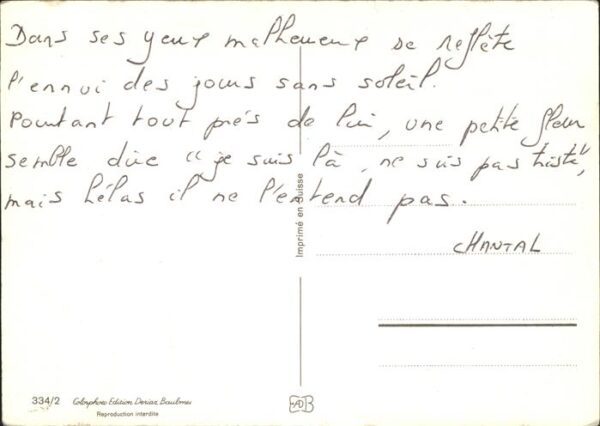 Dans ses yeux malheureux se reflète
l'ennui des jours sans soleil.
Pourtant tout près de lui, une petite fleur
semble dire "je suis là, ne suis pas triste",
mais hélas il ne l'entend pas.
CHANTAL
Imprimé en Suisse
334/2 Colorphoto Edition Deriaz Baulmes
Reproduction interdite